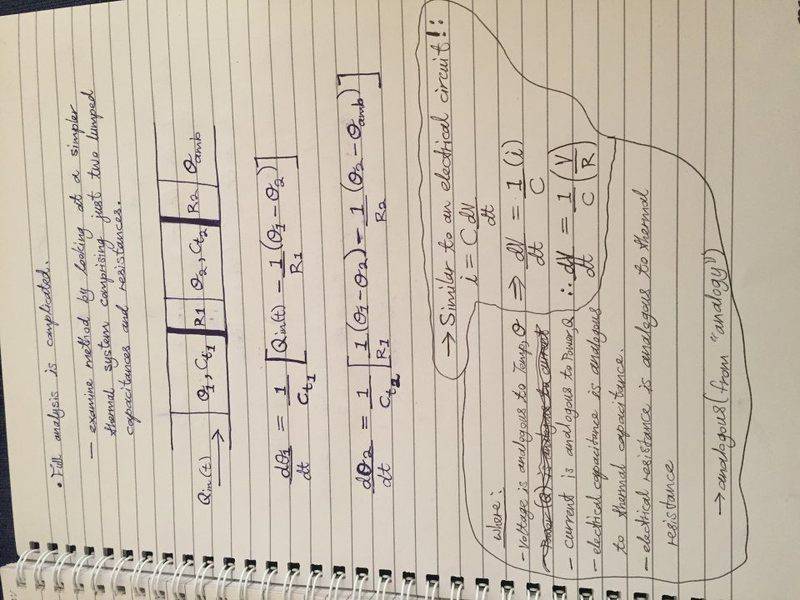 • Full analysis is complicated.
– examine method by looking at a simpler
thermal system comprising just two lumped
capacitances and resistances.
Qin(t) → θ1, Ct1 R1 θ2, Ct2 R2 θamb
dθ1/dt = 1/Ct1 [Qin(t) – 1/R1 (θ1 – θ2)]
dθ2/dt = 1/Ct2 [1/R1 (θ1 – θ2) – 1/R2 (θ2 – θamb)]
→ Similar to an electrical circuit!:
i = C dV/dt
⇒ dV/dt = 1/C (i)
∴ dV/dt = 1/C (V/R)
where:
– Voltage is analogous to Temp, θ
– Power (Q) is analogous to current
– current is analogous to Power, Q
– electrical capacitance is analogous
to thermal capacitance.
– electrical resistance is analogous to thermal
resistance
→ analogous (from "analogy")